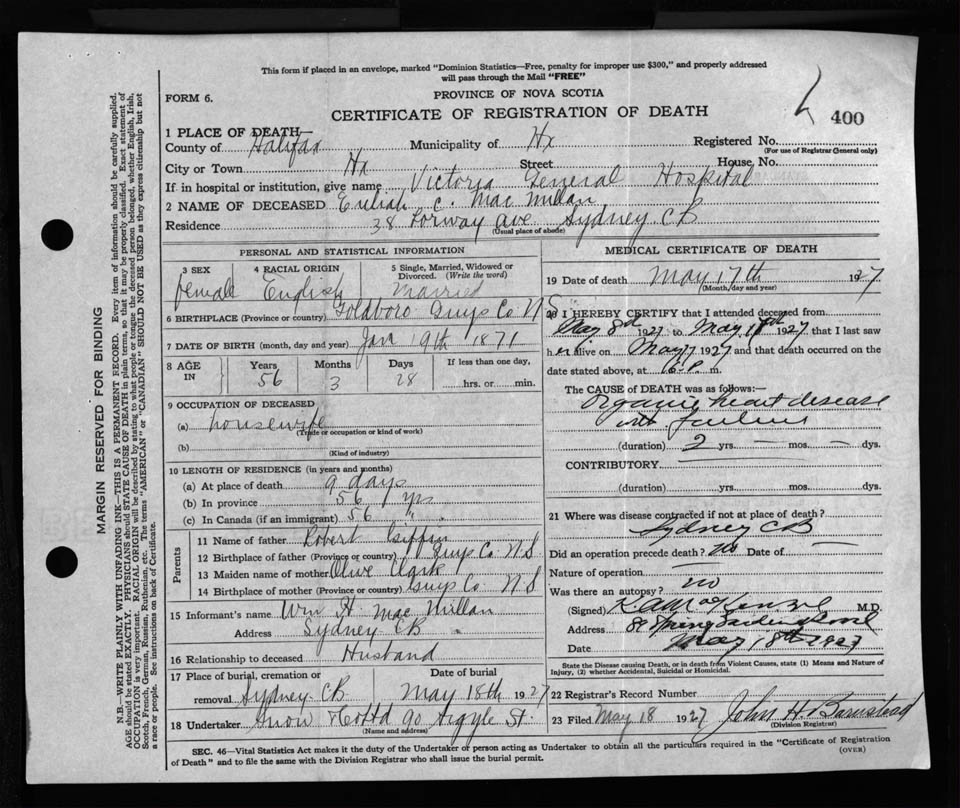 This form if placed in an envelope, marked "Dominion Statistics—Free, penalty for improper use $300," and properly addressed
will pass through the Mail "FREE"
FORM 6.
PROVINCE OF NOVA SCOTIA
CERTIFICATE OF REGISTRATION OF DEATH
400
1 PLACE OF DEATH—
County of Halifax Municipality of Hx Registered No.
(For use of Registrar General only)
City or Town Hx Street House No.
If in hospital or institution, give name Victoria General Hospital
2 NAME OF DECEASED C. MacMillan
Residence 38 Ave Sydney CB
(Usual place of abode)
PERSONAL AND STATISTICAL INFORMATION
3 SEX 4 RACIAL ORIGIN 5 Single, Married, Widowed or Divorced. (Write the word)
female English Married
6 BIRTHPLACE (Province or country) Goldboro Guys Co. N S
7 DATE OF BIRTH (month, day and year) Jan 19th 1871
8 AGE IN Years Months Days If less than one day,
56 3 28 hrs. or min.
9 OCCUPATION OF DECEASED
(a) housewife
(Trade or occupation or kind of work)
(b)
(Kind of industry)
10 LENGTH OF RESIDENCE (in years and months)
(a) At place of death 9 days
(b) In province 56 yrs
(c) In Canada (if an immigrant) 56 "
Parents
11 Name of father Robert Giffin
12 Birthplace of father (Province or country) Guys Co N.S
13 Maiden name of mother Olive Clark
14 Birthplace of mother (Province or country) Guys Co. N.S
15 Informant's name Wm H. MacMillan
Address Sydney CB
16 Relationship to deceased Husband
17 Place of burial, cremation or removal Sydney CB Date of burial May 18th 1927
18 Undertaker Snow & Co Ltd 90 Argyle St.
(Name and address)
MEDICAL CERTIFICATE OF DEATH
19 Date of death May 17th 1927
(Month, day and year)
20 I HEREBY CERTIFY that I attended deceased from
May 8th 1927 to May 17th 1927 that I last saw
her alive on May 17 1927 and that death occurred on the
date stated above, at m.
The CAUSE of DEATH was as follows:—
Organic heart disease
with failure
(duration) 2 yrs. — mos. — dys.
CONTRIBUTORY
(duration) yrs. mos. dys.
21 Where was disease contracted if not at place of death?
Sydney CB
Did an operation precede death? No Date of —
Nature of operation —
Was there an autopsy? no
(Signed) K.A. MacKenzie M.D.
Address Spring Garden Road
Date May 18th 1927
State the Disease causing Death, or in death from Violent Causes, state (1) Means and Nature of
Injury, (2) whether Accidental, Suicidal or Homicidal.
22 Registrar's Record Number
23 Filed May 18 1927 John H. Barnstead
(Division Registrar)
SEC. 46—Vital Statistics Act makes it the duty of the Undertaker or person acting as Undertaker to obtain all the particulars required in the "Certificate of Registration
of Death" and to file the same with the Division Registrar who shall issue the burial permit.
(OVER)
MARGIN RESERVED FOR BINDING
N.B.—WRITE PLAINLY WITH UNFADING INK—THIS IS A PERMANENT RECORD. Every item of information should be carefully supplied.
AGE should be stated EXACTLY. PHYSICIANS should STATE CAUSE OF DEATH in plain terms, so that it may be properly classified. Exact statement of
OCCUPATION is very important. RACIAL ORIGIN will be described by stating to what people or tongue the deceased person belonged, whether English, Irish,
Scotch, French, German, Russian, Ruthenian, etc. The terms "AMERICAN" or "CANADIAN" SHOULD NOT BE USED as they express citizenship but not
a race or people. See instructions on back of Certificate.